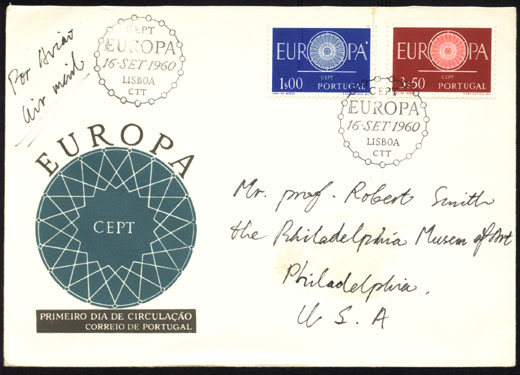 Por Avião
Air mail
CEPT
EUROPA
16·SET 1960
LISBOA
CTT
EUROPA
1$00
CEPT
PORTUGAL
EUROPA
3$50
CEPT
PORTUGAL
CEPT
EUROPA
16·SET 1960
LISBOA
CTT
EUROPA
CEPT
PRIMEIRO DIA DE CIRCULAÇÃO
CORREIO DE PORTUGAL
Mr. prof. Robert Smith
the Philadelphia Museum of Art
Philadelphia.
U S A